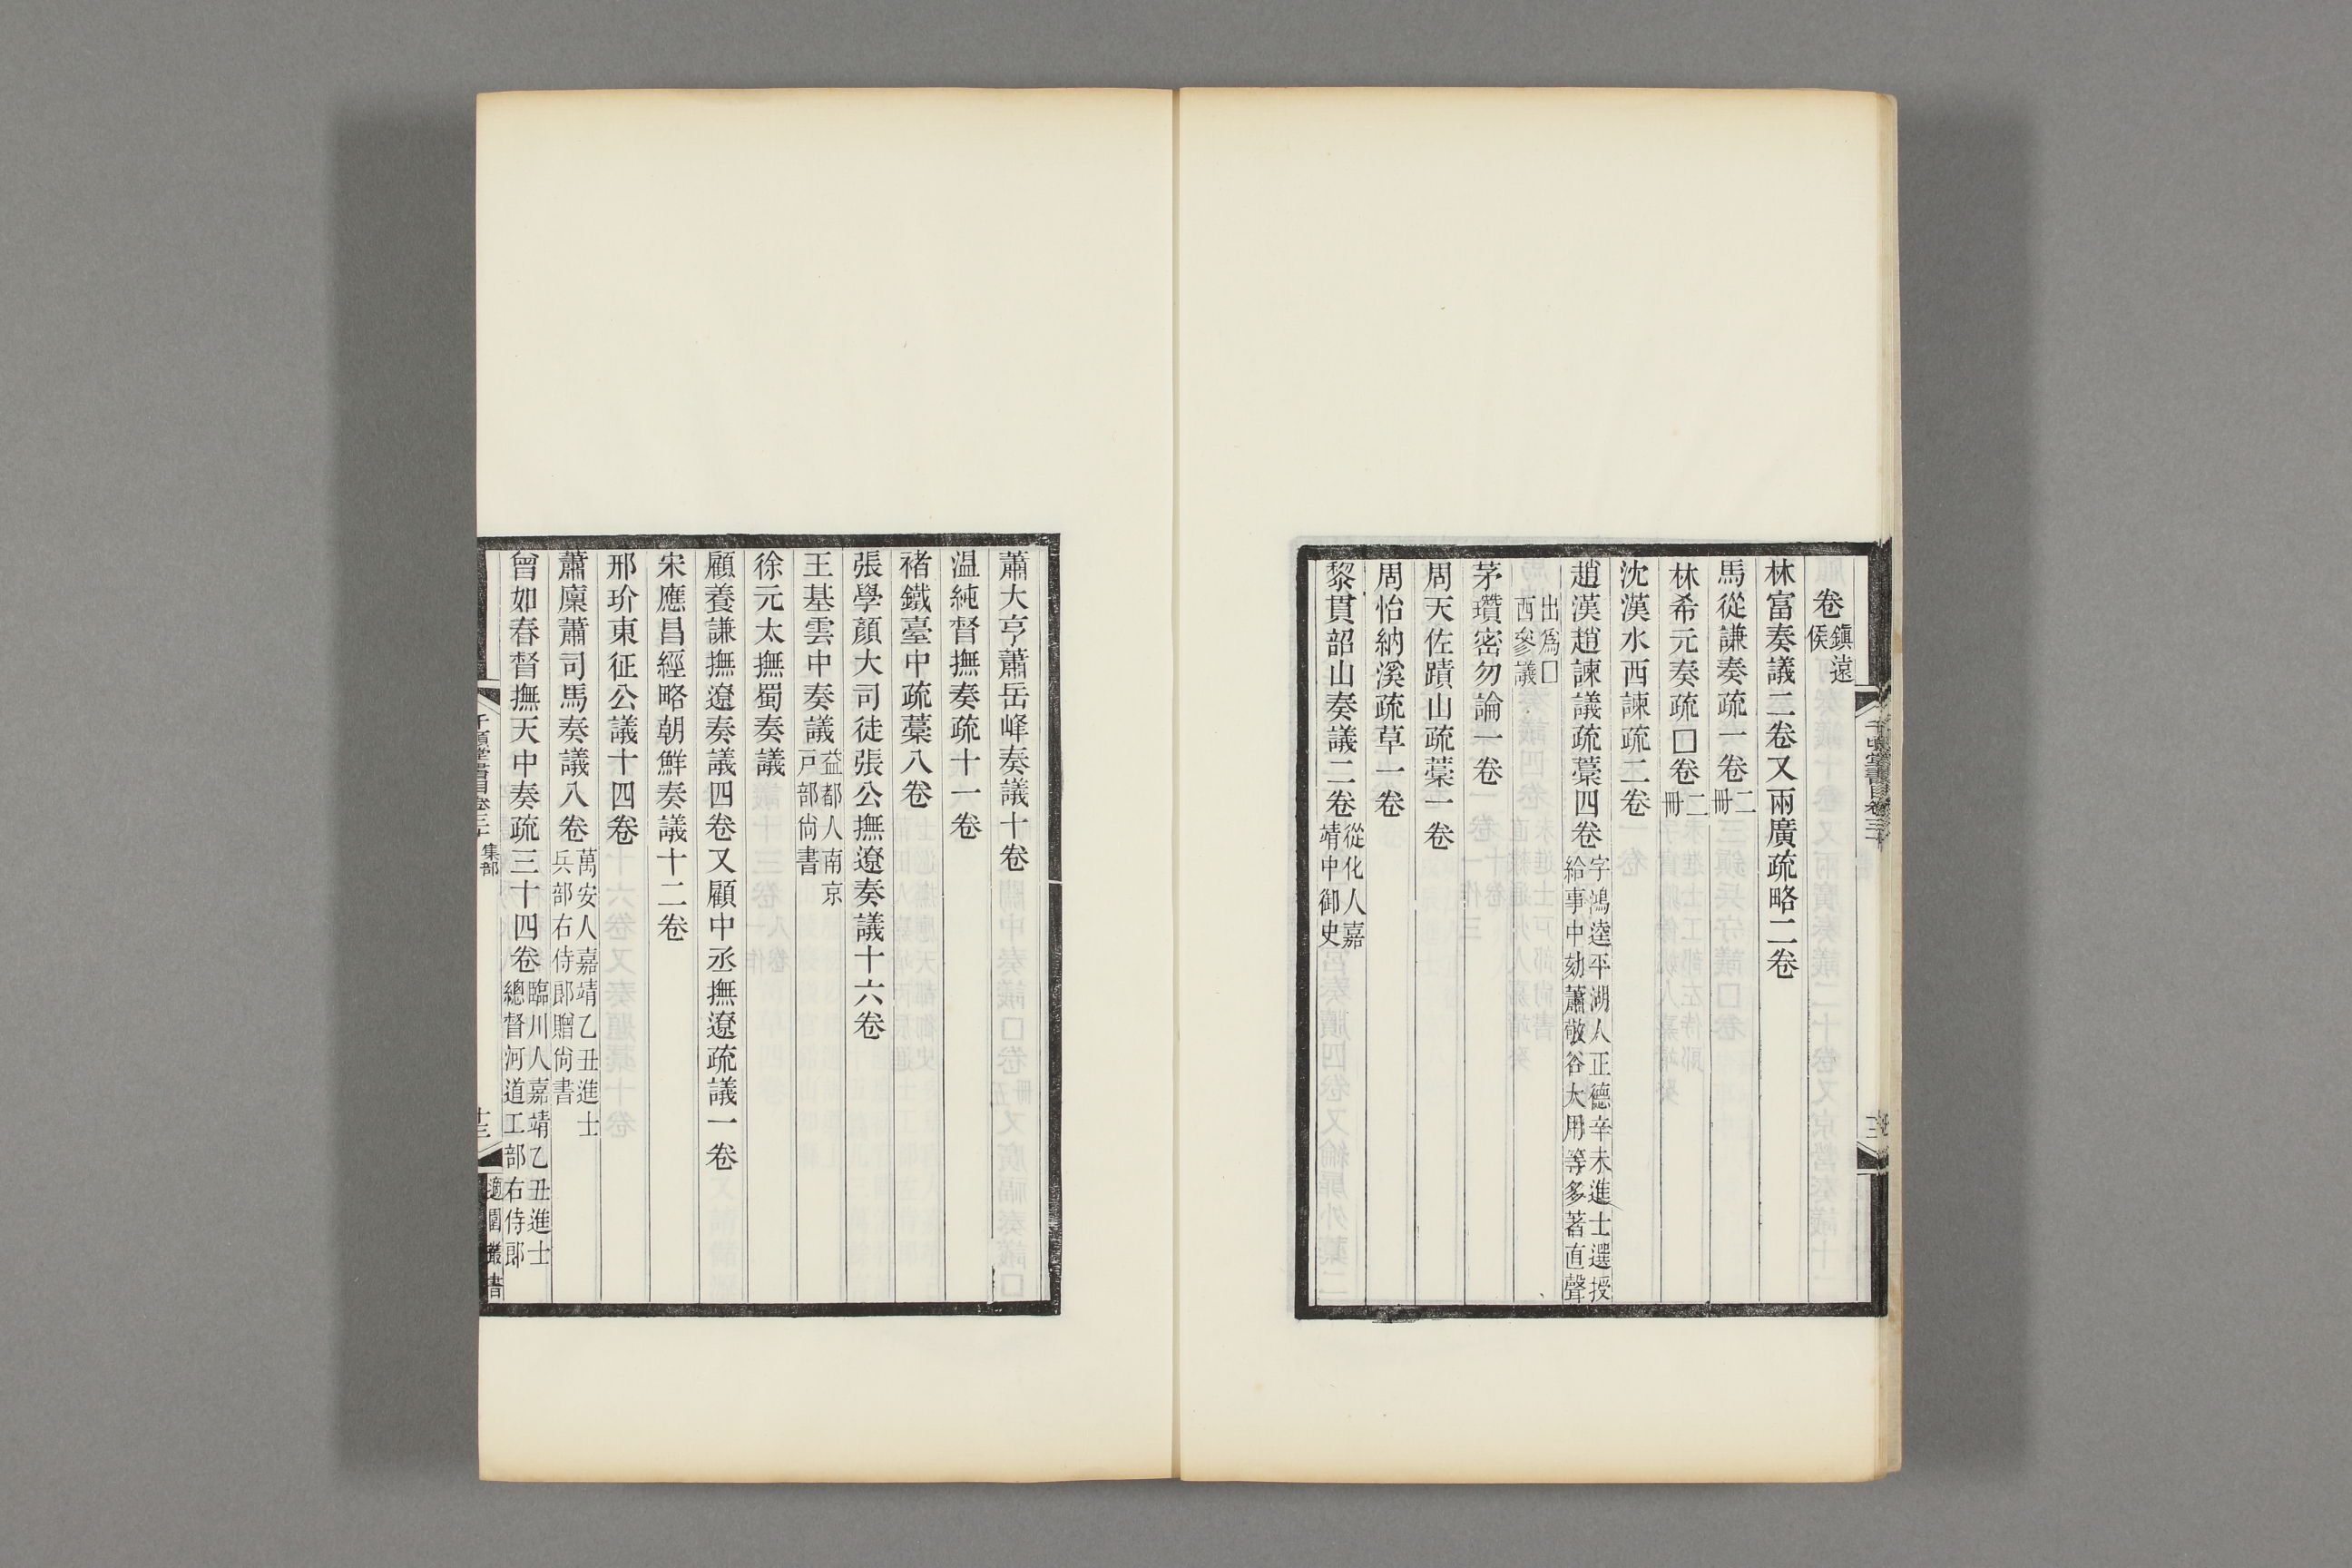 卷鎮遠侯
林富奏議二卷又兩廣疏略二卷
馬從謙奏疏一卷二冊
林希元奏疏□卷二冊
沈漢水西諫疏二卷
趙漢趙諫議疏藁四卷字鴻逵平湖人正德辛未進士選授給事中劾蕭敬谷大用等多著直聲
出爲□西參議
茅瓚密勿論一卷
周天佐蹟山疏藁一卷
周怡納溪疏草一卷
黎貫韶山奏議二卷從化人嘉靖中御史
千頃堂書目卷三十
蕭大亨蕭岳峰奏議十卷
温純督撫奏疏十一卷
褚鐵臺中疏藁八卷
張學顏大司徒張公撫遼奏議十六卷
王基雲中奏議益都人南京戸部尙書
徐元太撫蜀奏議
顧養謙撫遼奏議四卷又顧中丞撫遼疏議一卷
宋應昌經略朝鮮奏議十二卷
邢玠東征公議十四卷
蕭廩蕭司馬奏議八卷萬安人嘉靖乙丑進士兵部右侍郎贈尙書
曾如春督撫天中奏疏三十四卷臨川人嘉靖乙丑進士總督河道工部右侍郎
千頃堂書目卷三十 集部 十三 適園叢書